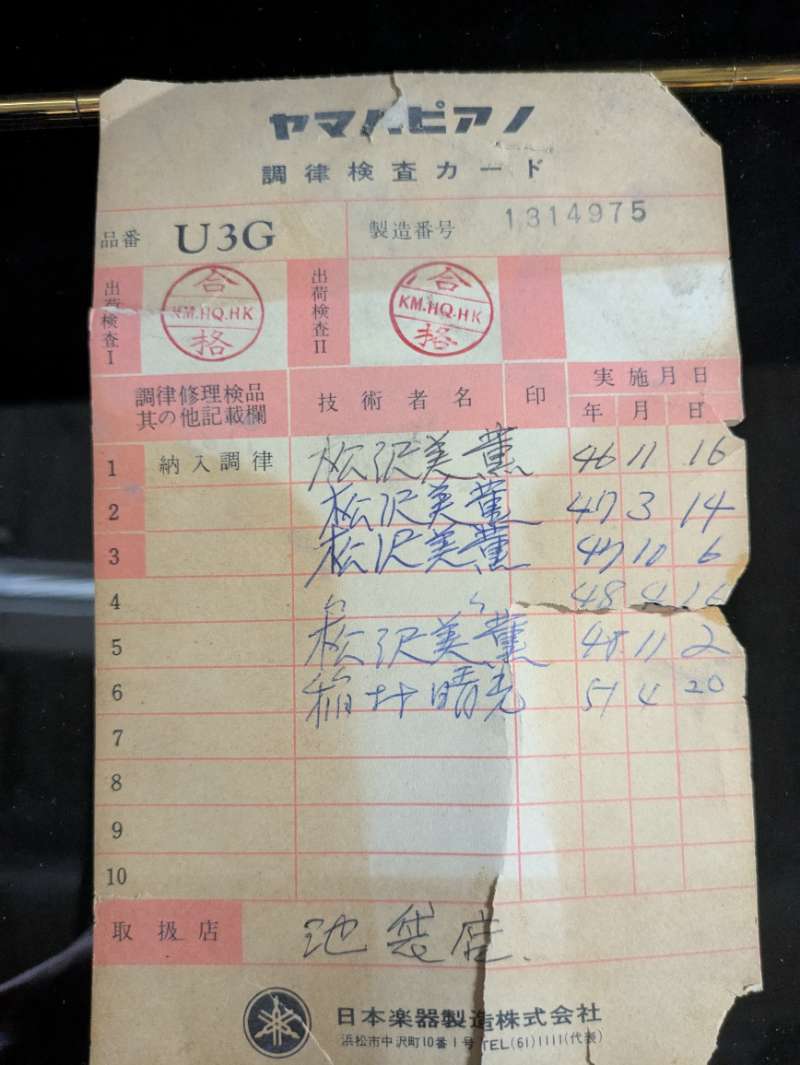 ヤマハピアノ
調律検査カード
品番 U3G 製造番号 1314975
出荷検査I 合格 KM.HQ.HK 出荷検査II 合格 KM.HQ.HK
調律修理検品其の他記載欄 技術者名 印 実施月日
年 月 日
1 納入調律 松沢美薫 46 11 16
2 松沢美薫 47 3 14
3 松沢美薫 47 10 6
4 48 4 16
5 松沢美薫 48 11 2
6 稲井晴光 51 4 20
7
8
9
10
取扱店 池袋店.
日本楽器製造株式会社
浜松市中沢町10番1号 TEL(61)1111(代表)